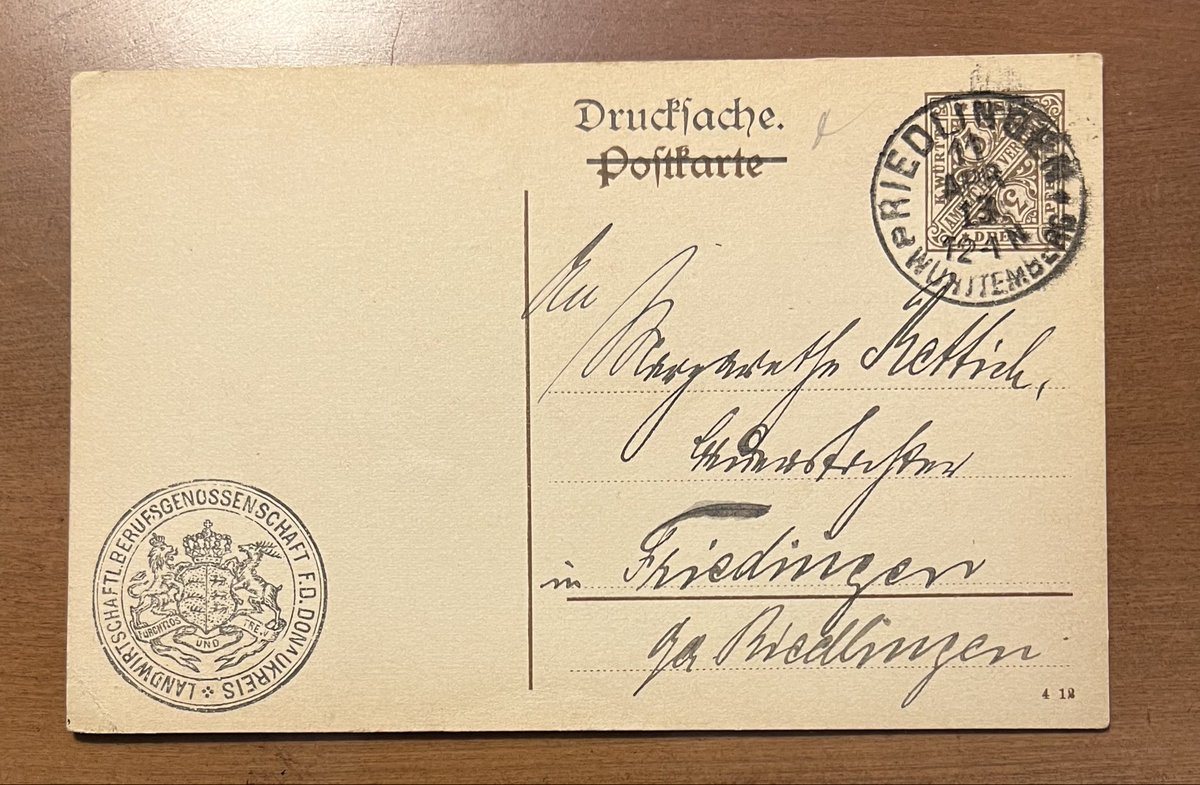 Drucksache.
Postkarte
RIEDLINGEN
13
APR
13.
12-1 N
WÜRTTEMBERG
An
Margarethe Rettich,
in Friedingen
Riedlingen
LANDWIRTSCHAFTL. BERUFSGENOSSENSCHAFT F.D. DONAUKREIS
FURCHTLOS UND TREW
4 12